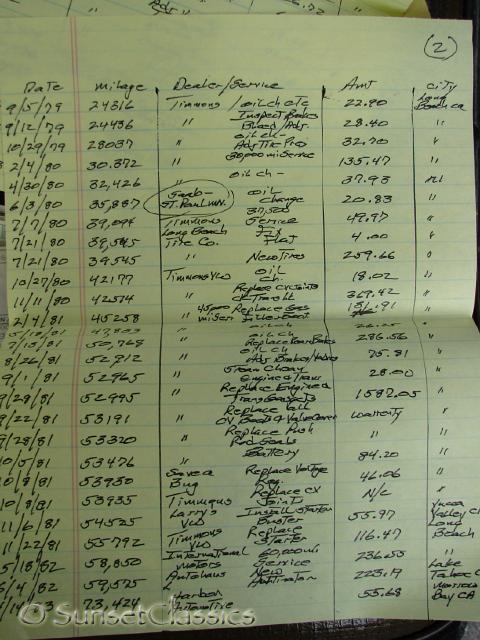 (2)
Date milage Dealer/Service Amt City
9/5/79 24316 Timmons / oil ch etc 22.90 Long Beach ca
9/12/79 24436 " Inspect Brakes Bleed/Adj. 28.40 "
10/29/79 28037 " oil ch - 32.70 "
2/4/80 30.372 " 30,000 mi Service 135.47 "
4/30/80 32,426 oil ch - 37.93
6/3/80 35,887 Saab- St. Paul MN. oil change 20.83 "
7/7/80 39,094 Timmons 37,500 Service 49.97 "
7/21/80 39,545 Long Beach Tire Co. Fix Flat 4.00 "
7/21/80 39545 " New Tires 259.66 "
10/27/80 42177 Timmons VW oil ch. 18.02 "
11/11/80 42574 " Replace CV Joints 369.42 "
2/4/81 45258 45,000 mi Serv Replace 151.91 "
" oil ch 26.25 "
7/13/81 50,768 " oil ch Replace Rear Brakes 286.56 "
8/26/81 52,912 " oil ch Adj Brakes/Valves 75.81 "
9/1/81 52965 " Steam Clean Engine & Trans 28.00 "
9/28/81 52995 " Replace Engine & Trans 1587.05 "
9/22/81 53191 " Replace Valve Cover warranty "
9/28/81 53320 " Replace Push Rod Seals " "
10/5/81 53476 " Battery 84.20 "
53930 Save a Bug Replace Voltage Reg. 46.06 "
10/8/81 53935 Timmons Replace CV Joints N/C "
11/6/81 54525 Larry's VW Install Starter Buster 55.97 Yucca Valley
11/22/81 55792 Timmons VW Replace Starter 116.47 Long Beach
5/18/82 58,850 International Motors 60,000 mi Service 236.55 "
6/4/82 59,575 Autohaus New 223.19 Lake Tahoe
73,424 Harbor Automotive 55.68 Morro Bay CA
SunsetClassics